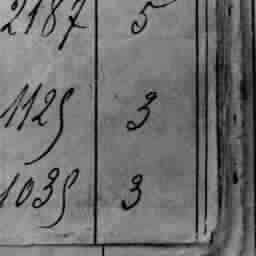 2187 5
1125 3
1035 3